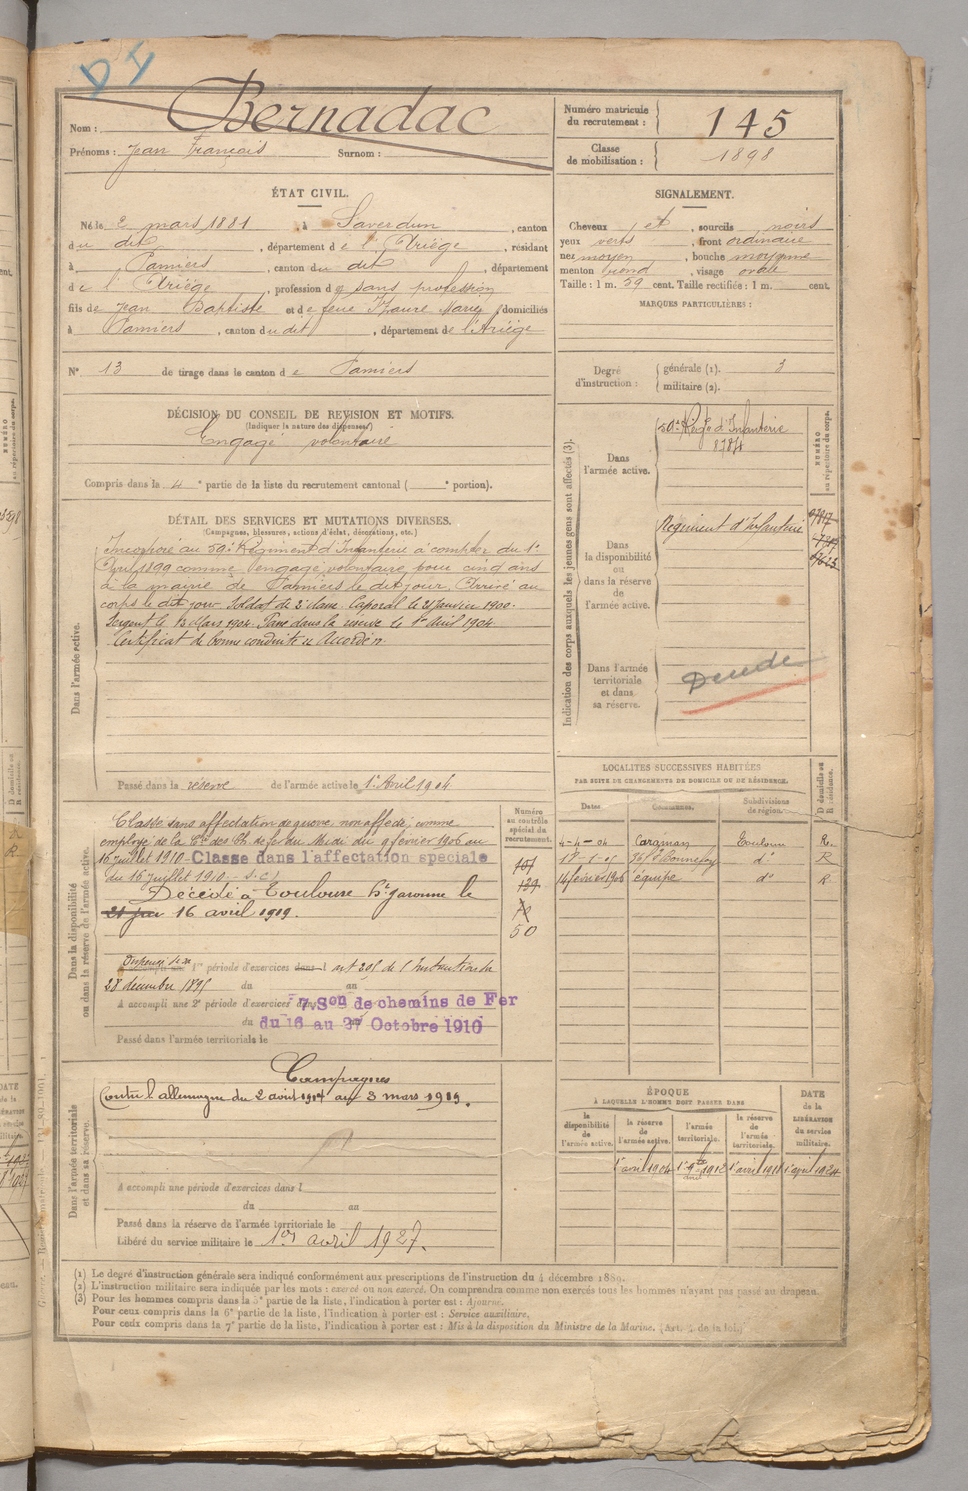 D I
Nom : Bernadac
Prénoms : Jean François Surnom :
Numéro matricule du recrutement : 145
Classe de mobilisation : 1898
ÉTAT CIVIL.
Né le 2 mars 1881, à Saverdun, canton
du dit, département de l'Ariège, résidant
à Pamiers, canton du dit, département
de l'Ariège, profession de sans profession
fils de Jean Baptiste et de feue Faure Marie, domiciliés
à Pamiers, canton du dit, département de l'Ariège
N° 13 de tirage dans le canton de Pamiers
SIGNALEMENT.
Cheveux et, sourcils noirs
yeux verts, front ordinaire
nez moyen, bouche moyenne
menton rond, visage ovale
Taille : 1 m. 59 cent. Taille rectifiée : 1 m. cent.
MARQUES PARTICULIÈRES :
Degré d'instruction : générale (1). 3
militaire (2).
DÉCISION DU CONSEIL DE REVISION ET MOTIFS.
(Indiquer la nature des dispenses)
Engagé volontaire
Compris dans la 4e partie de la liste du recrutement cantonal ( e portion).
DÉTAIL DES SERVICES ET MUTATIONS DIVERSES.
(Campagnes, blessures, actions d'éclat, décorations, etc.)
Dans l'armée active.
Incorporé au 59e Régiment d'Infanterie à compter du 1er
Avril 1899 comme engagé volontaire pour cinq ans
à la mairie de Pamiers le dit jour. Arrivé au
corps le dit jour soldat de 2e classe. Caporal le 21 Janvier 1900.
Sergent le 13 Mars 1904. Passé dans la réserve le 1er Avril 1904
Certificat de bonne conduite "Accordé".
Passé dans la réserve de l'armée active le 1er Avril 1904
Indication des corps auxquels les jeunes gens sont affectés (3).
NUMÉRO au répertoire du corps.
Dans l'armée active.
59e Régt d'Infanterie
8784
Dans la disponibilité ou dans la réserve de l'armée active.
Régiment d'Infanterie
Dans l'armée territoriale et dans sa réserve.
LOCALITÉS SUCCESSIVES HABITÉES
PAR SUITE DE CHANGEMENTS DE DOMICILE OU DE RÉSIDENCE.
Dates Communes. Subdivisions de région. D domicile ou R résidence.
4-4-04 Caraman Toulouse R.
do R
14 février 1906 équipe do R
Dans la disponibilité ou dans la réserve de l'armée active.
Numéro au contrôle spécial du recrutement.
Classé sans affectation de guerre non affecté comme
employé de la Cie des Ch. de fer du Midi du 9 février 1906 au
16 juillet 1910 - Classé dans l'affectation spéciale
du 16 juillet 1910 - S.C.
Décédé à Toulouse Hte Garonne le
16 avril 1919.
50
Dispensé de sa 1re période d'exercices dans l art 205 de l'Instruction du
28 décembre 1895 du au
A accompli une 2e période d'exercices dans 7e Son de chemins de Fer
du 16 au 27 Octobre 1910
Passé dans l'armée territoriale le
Dans l'armée territoriale et dans sa réserve.
Campagnes
Contre l'allemagne du 2 août 1914 au 3 mars 1919.
A accompli une période d'exercices dans l
du au
Passé dans la réserve de l'armée territoriale le
Libéré du service militaire le 1er avril 1927.
ÉPOQUE
À LAQUELLE L'HOMME DOIT PASSER DANS
la disponibilité de l'armée active. la réserve de l'armée active. l'armée territoriale. la réserve de l'armée territoriale. DATE de la LIBÉRATION du service militaire.
1er avril 1904 1er avril 1924
(1) Le degré d'instruction générale sera indiqué conformément aux prescriptions de l'instruction du 4 décembre 1889.
(2) L'instruction militaire sera indiquée par les mots : exercé ou non exercé. On comprendra comme non exercés tous les hommes n'ayant pas passé au drapeau.
(3) Pour les hommes compris dans la 5e partie de la liste, l'indication à porter est : Ajourné.
Pour ceux compris dans la 6e partie de la liste, l'indication à porter est : Service auxiliaire.
Pour ceux compris dans la 7e partie de la liste, l'indication à porter est : Mis à la disposition du Ministre de la Marine. (Art. 4 de la loi.)